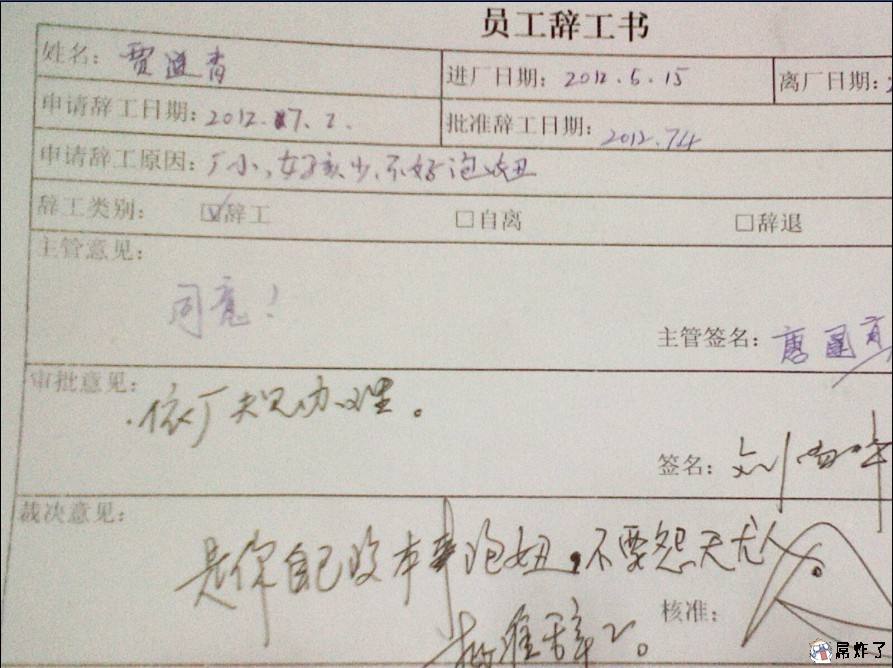 员工辞工书
姓名: 贾 青
进厂日期: 2012.5.15
离厂日期:
申请辞工日期: 2012.7.2.
批准辞工日期: 2012.7.4
申请辞工原因: 厂小,女孩少,不好泡妞
辞工类别: ☑辞工 □自离 □辞退
主管意见:
同意!
主管签名: 唐国
审批意见:
依厂规办理。
签名: 刘
裁决意见:
是你自己没本事泡妞,不要怨天尤人
核准:
批准辞工。
屌炸了